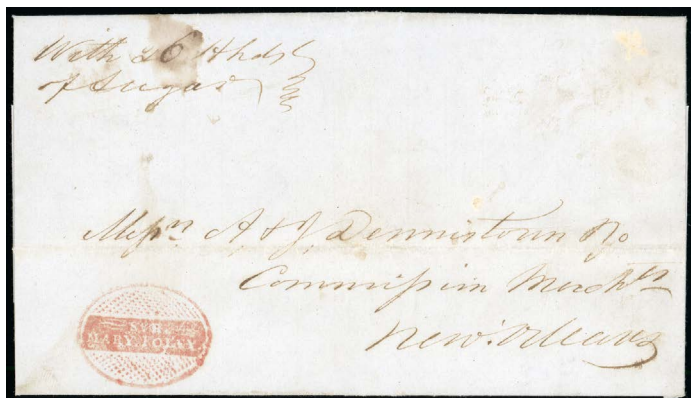 With 26 Hhds
of Sugar
Messrs A & J Dennistoun & Co
Commission Merchts
New Orleans